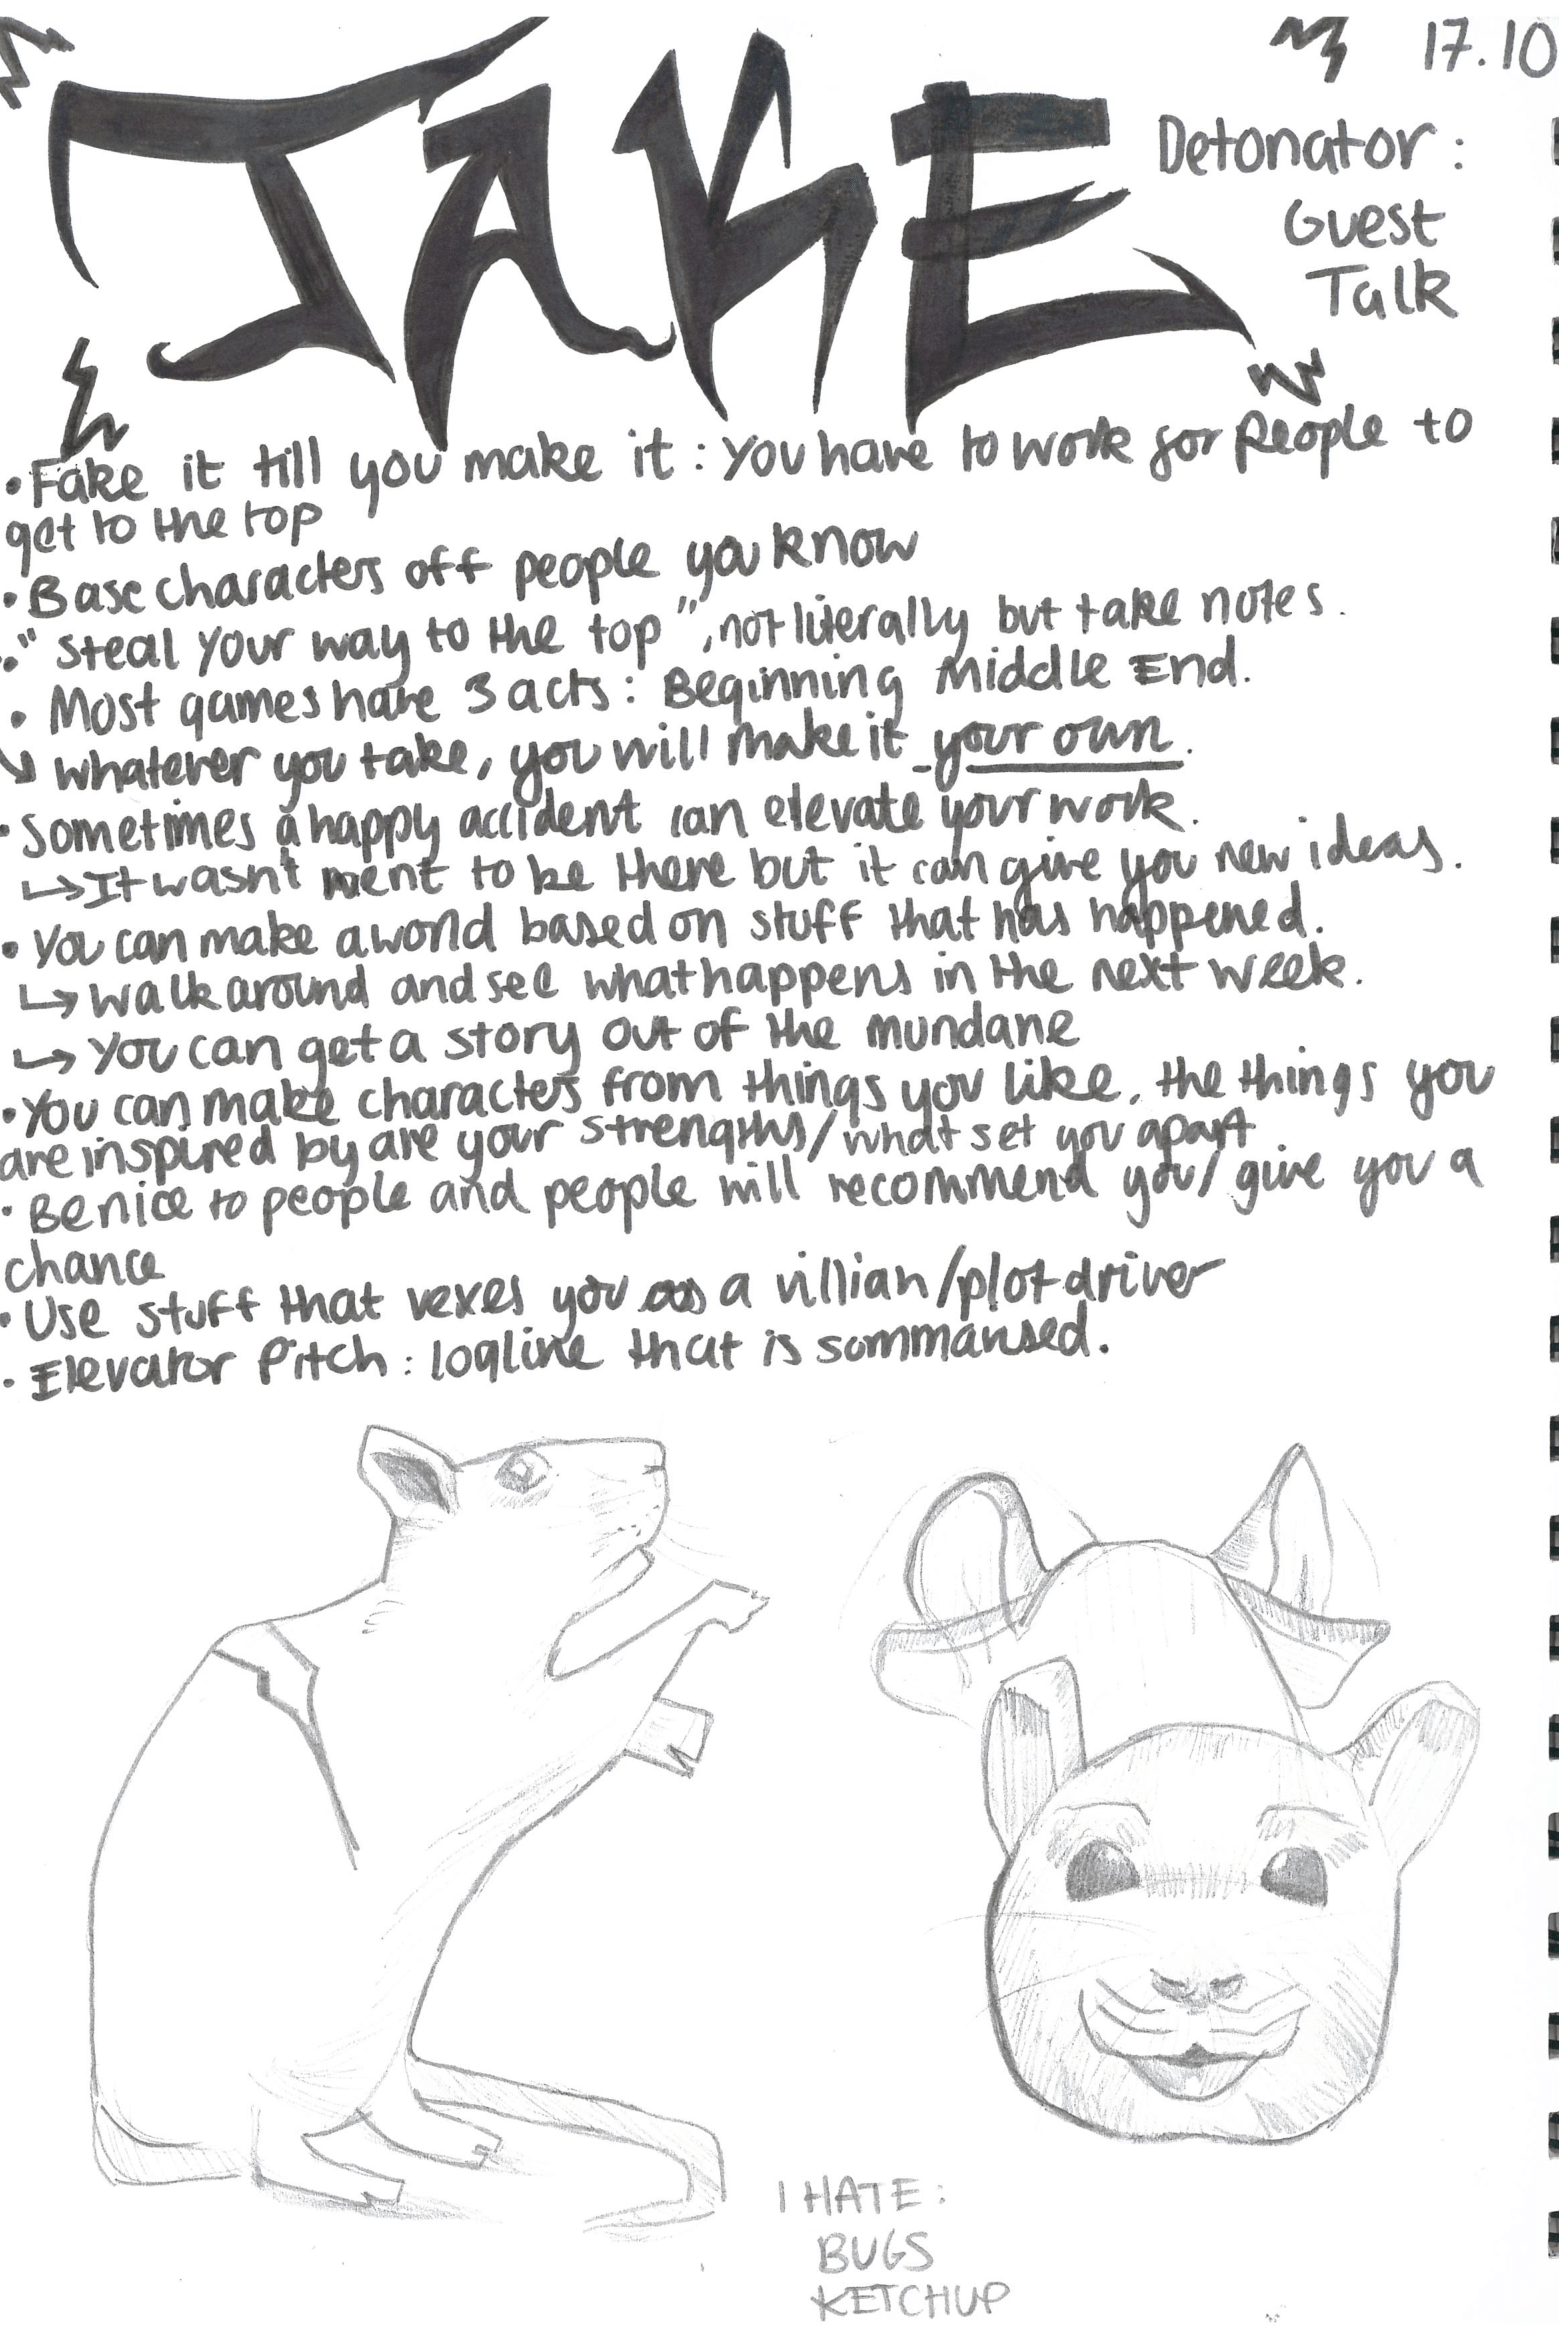 JAKE
17.10
Detonator:
Guest
Talk
• Fake it till you make it: You have to work for people to
get to the top
• Base characters off people you know
• "Steal your way to the top", not literally but take notes.
• Most games have 3 acts: Beginning Middle End.
↘ whatever you take, you will make it your own.
• Sometimes a happy accident can elevate your work.
↳ It wasn't ment to be there but it can give you new ideas.
• You can make a world based on stuff that has happened.
↳ Walk around and see what happens in the next week.
↳ You can get a story out of the mundane
• You can make characters from things you like, the things you
are inspired by are your strengths/what set you apart
• Be nice to people and people will recommend you/give you a
chance
• Use stuff that vexes you as a villian/plot driver
• Elevator Pitch: logline that is sommarised.
I HATE:
BUGS
KETCHUP